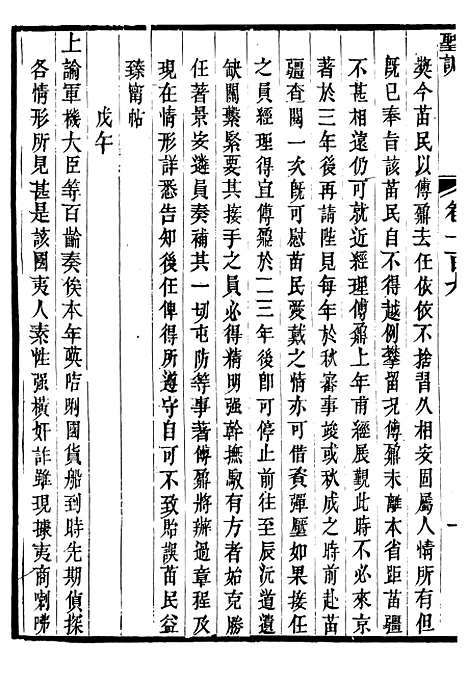 聖訓
卷一百九
一
獎今苗民以傅鼐去任依依不捨習久相安固屬人情所有但
旣已奉旨該苗民自不得越例攀留況傅鼐未離本省距苗疆
不甚相遠仍可就近經理傅鼐上年甫經展覲此時不必來京
著於三年後再請陛見每年於秋審事竣或秋成之時前赴苗
疆查閱一次旣可慰苗民愛戴之情亦可借資彈壓如果接任
之員經理得宜傅鼐於一二三年後卽可停止前往至辰沅道遺
缺關繫緊要其接手之員必得精明強幹撫馭有方者始克勝
任著景安遴員奏補其一切屯防等事著傅鼐將辦過章程及
現在情形詳悉告知後任俾得所遵守自可不致貽誤苗民益
臻甯帖
戊午
上諭軍機大臣等百齡奏俟本年𠸄咭唎國貨船到時先期偵探
各情形所見甚是該國夷人素性強橫奸詐雖現據夷商喇咈